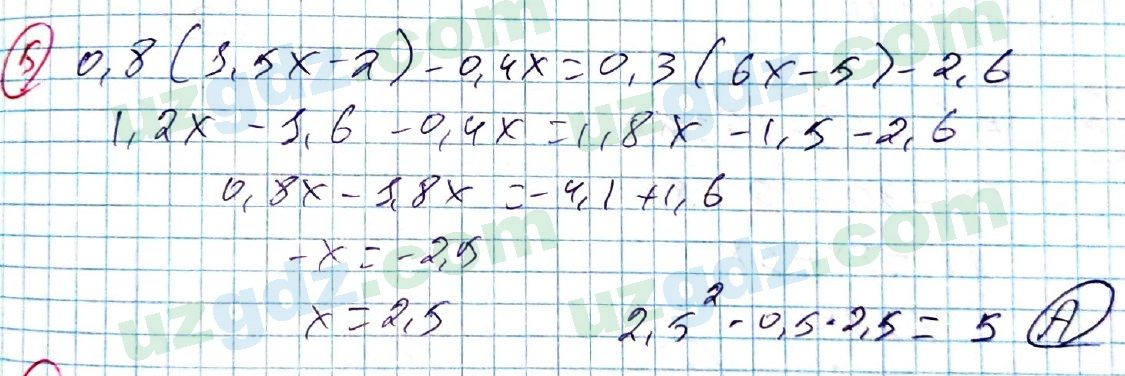 5 0,8(1,5x-2)-0,4x=0,3(6x-5)-2,6
1,2x-1,6-0,4x=1,8x-1,5-2,6
0,8x-1,8x=-4,1+1,6
-x=-2,5
x=2,5 2,5²-0,5·2,5=5 A
uzgdz.com
uzgdz.com
uzgdz.com
uzgdz.com
uzgdz.com
uzgdz.com